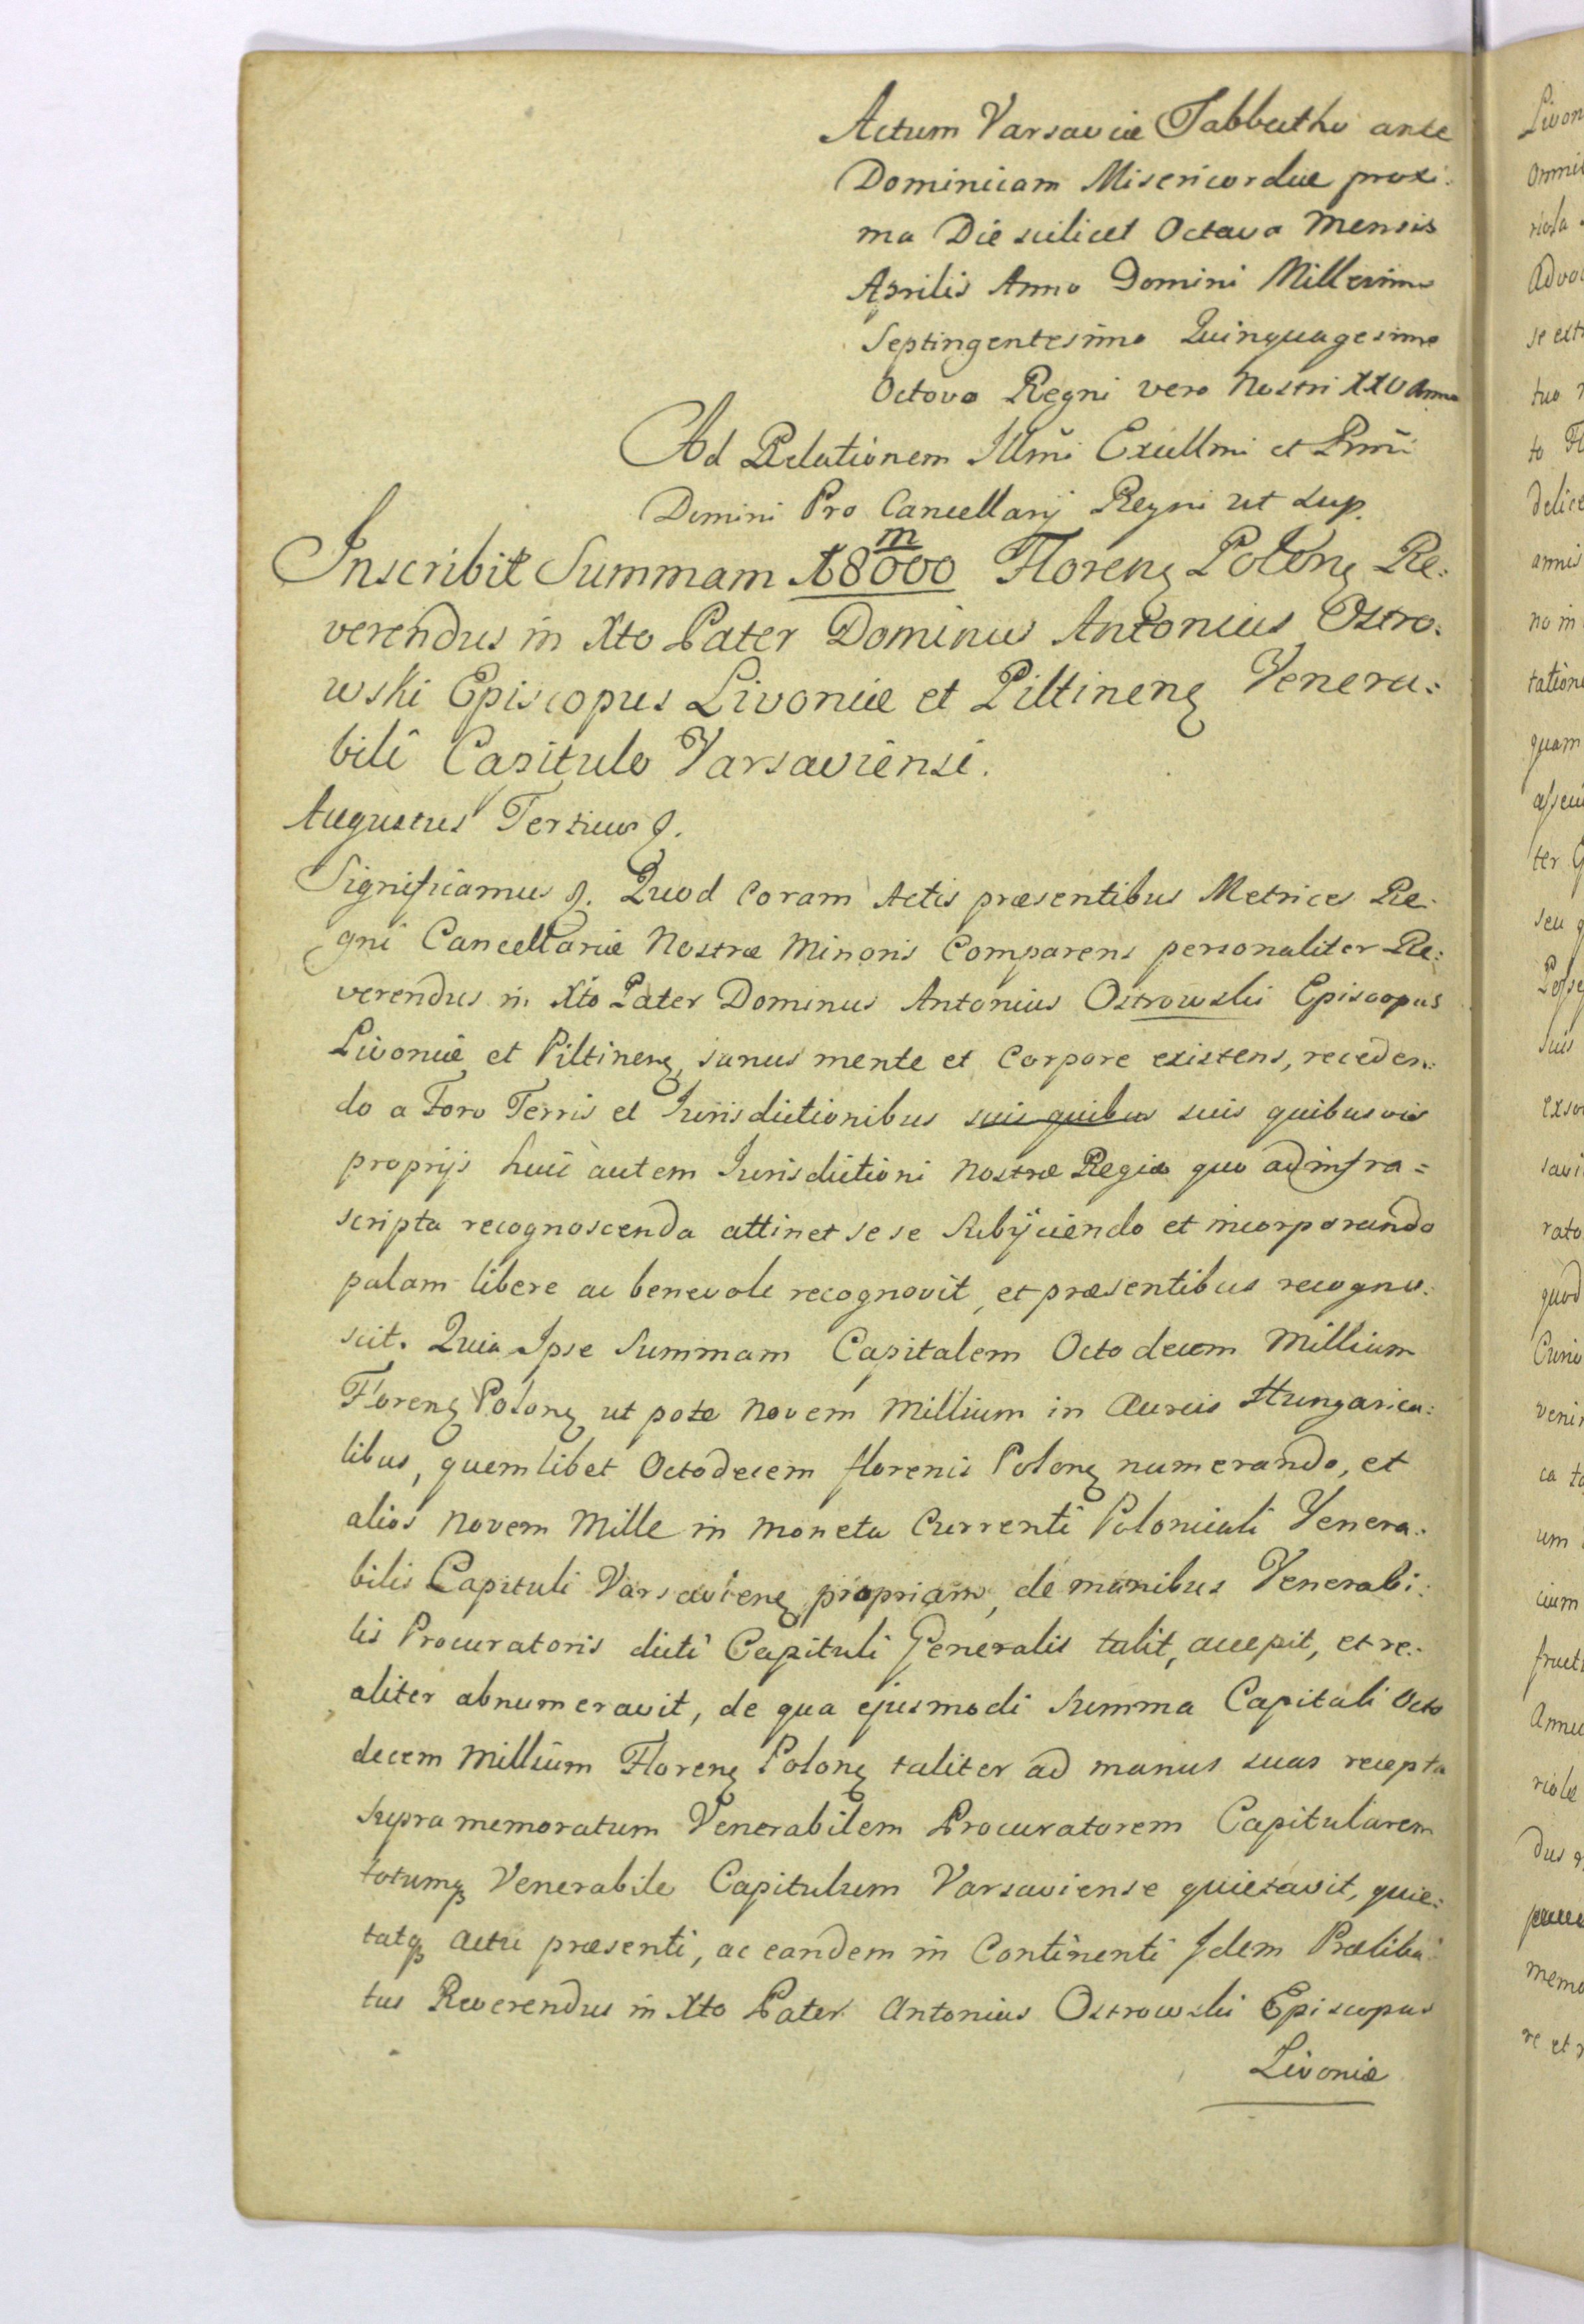 Actum Varsaviæ Sabbatho ante
Dominicam Misericordiæ proxi:
ma Die scilicet Octava Mensis
Aprilis Anno Domini Millesimo
Septingentesimo Quinquagesimo
Octavo Regni vero Nostri XXV Anno
Ad Relationem Illmi Excellmi et Rmi
Domini Pro Cancellarij Regni ut sup.
Inscribit Summam 18000 m Floreng Polong Re:
verendus in Xto Pater Dominus Antonius Ostro:
wski Episcopus Livoniæ et Piltineng Venera:
bili Capitulo Varsaviensi.
Augustus Tertius
Significamus Quod Coram Actis præsentibus Metrices Re:
gni Cancellariæ Nostræ Minoris Comparens personaliter Re:
verendus in Xto Pater Dominus Antonius Ostrowski Episcopus
Livoniæ et Piltineng, sanus mente et Corpore existens, receden:
do a Foro Terris et Jurisdictionibus suis quibus suis quibusvis
proprijs huic autem Jurisdictioni Nostræ Regiæ quo ad infra=
scripta recognoscenda attinet se se subÿciendo et incorporando
palam libere ac benevole recognovit, et præsentibus recogno:
scit. Quia Ipse Summam Capitalem Octodecem Millium
Floreng Polong ut pote Novem Millium in Aureis Hungarica:
libus, quemlibet Octodecem florenis Polong numerando, et
alios Novem Mille in Moneta Currenti Polonicali Venera:
bilis Capituli Varsavieng propriam, de manibus Venerabi:
lis Procuratoris dicti Capituli Generalis talit, accepit, et re:
aliter abnumeravit, de qua ejusmodi Summa Capitali Octo
decem Millium Floreng Polong taliter ad manus suas recepta
supra memoratum Venerabilem Procuratorem Capitularem
totumq Venerabile Capitulum Varsaviense quietavit, quie:
tatq actu præsenti, ac eandem in Continenti Idem Præliba:
tus Reverendus in Xto Pater Antonius Ostrowski Episcopus
Livoniæ